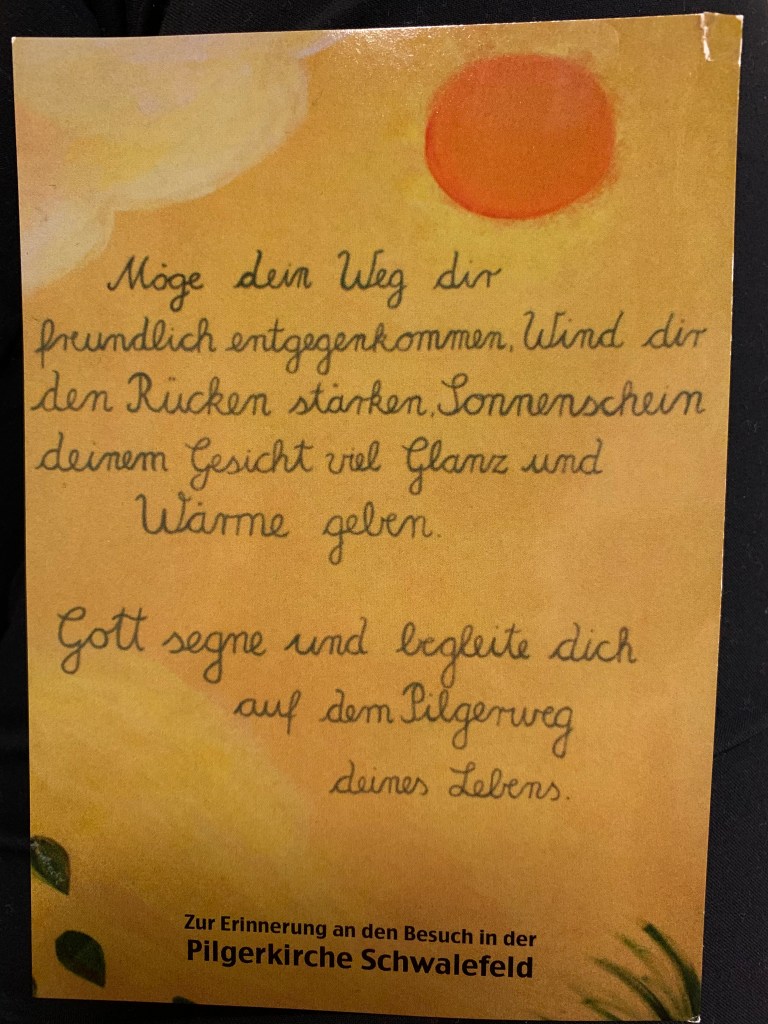 Möge dein Weg dir
freundlich entgegenkommen, Wind dir
den Rücken stärken, Sonnenschein
deinem Gesicht viel Glanz und
Wärme geben.
Gott segne und begleite dich
auf dem Pilgerweg
deines Lebens.
Zur Erinnerung an den Besuch in der
Pilgerkirche Schwalefeld